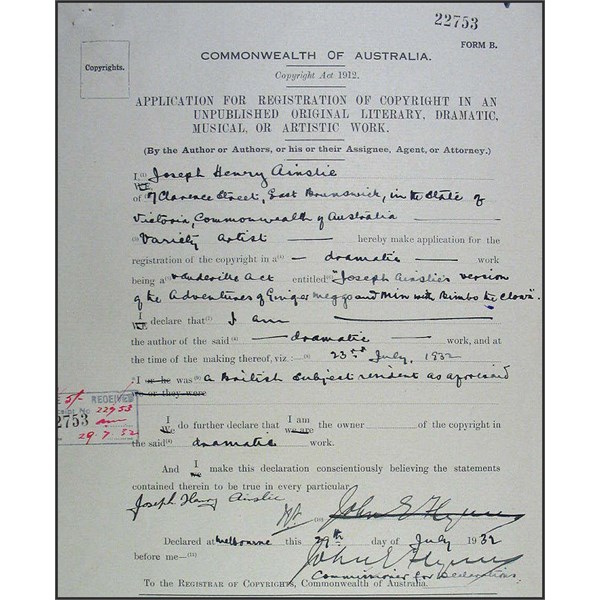 22753
FORM B.
Copyrights.
COMMONWEALTH OF AUSTRALIA.
Copyright Act 1912.
APPLICATION FOR REGISTRATION OF COPYRIGHT IN AN
UNPUBLISHED ORIGINAL LITERARY, DRAMATIC,
MUSICAL, OR ARTISTIC WORK.
(By the Author or Authors, or his or their Assignee, Agent, or Attorney.)
I (1) Joseph Henry Ainslie
We
of 7 Clarence Street, East Brunswick, in the State of
Victoria, Commonwealth of Australia
Variety Artist hereby make application for the
registration of the copyright in a dramatic work
being a vaudeville Act entitled "Joseph Ainslie's version
of the Adventures of Ginger Meggs and Min with Bimbo the Clown".
I
We declare that I am
the author of the said dramatic work, and at
the time of the making thereof, viz.:— 23rd July, 1932
I or he was a British subject resident as aforesaid
we or they were
5/- RECEIVED
No 22753
2753
29.7.32
I I am
We do further declare that we are the owner of the copyright in
the said dramatic work.
And I make this declaration conscientiously believing the statements
we
contained therein to be true in every particular.
Joseph Henry Ainslie
John E Flynn
Declared at Melbourne this 29th day of July 1932
before me— John E Flynn
Commissioner for Declarations.
To the REGISTRAR OF COPYRIGHTS, Commonwealth of Australia.